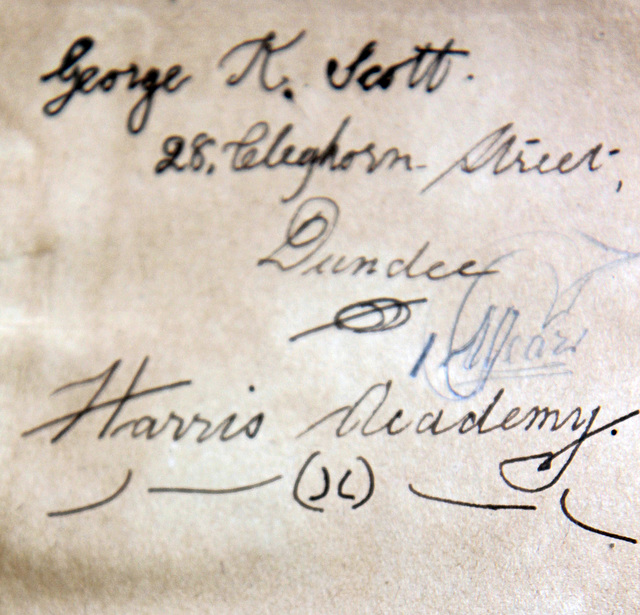 George K. Scott.
28, Cleghorn Street,
Dundee
Harris Academy.